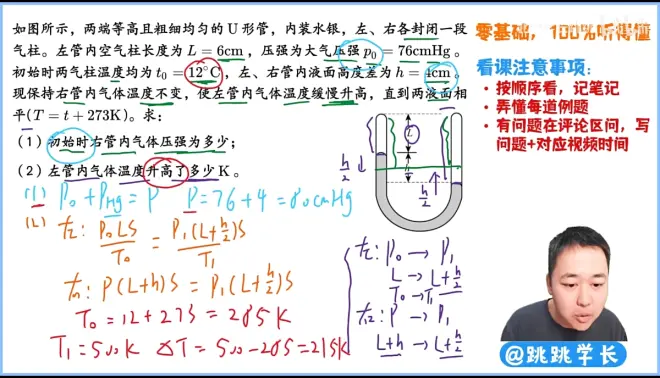 如图所示，两端等高且粗细均匀的 U 形管，内装水银，左、右各封闭一段
气柱。左管内空气柱长度为 L = 6cm，压强为大气压强 p₀ = 76cmHg。
初始时两气柱温度均为 t₀ = 12°C，左、右管内液面高度差为 h = 4cm。
现保持右管内气体温度不变，使左管内气体温度缓慢升高，直到两液面相
平(T = t + 273K)。求：
（1）初始时右管内气体压强为多少；
（2）左管内气体温度升高了多少 K。
(1) P₀ + P_Hg = P  P = 76 + 4 = 80cmHg
(2) 左: P₀LS/T₀ = P₁(L+h/2)S/T₁
右: P(L+h)S = P₁(L+h/2)S
T₀ = 12 + 273 = 285K
T₁ = 500K  ΔT = 500 - 285 = 215K
L
h/2
h/2
左: P₀ → P₁
L → L+h/2
T₀ → T₁
右: P → P₁
L+h → L+h/2
零基础，100%听得懂
看课注意事项：
• 按顺序看，记笔记
• 弄懂每道例题
• 有问题在评论区问，写
问题+对应视频时间
@跳跳学长